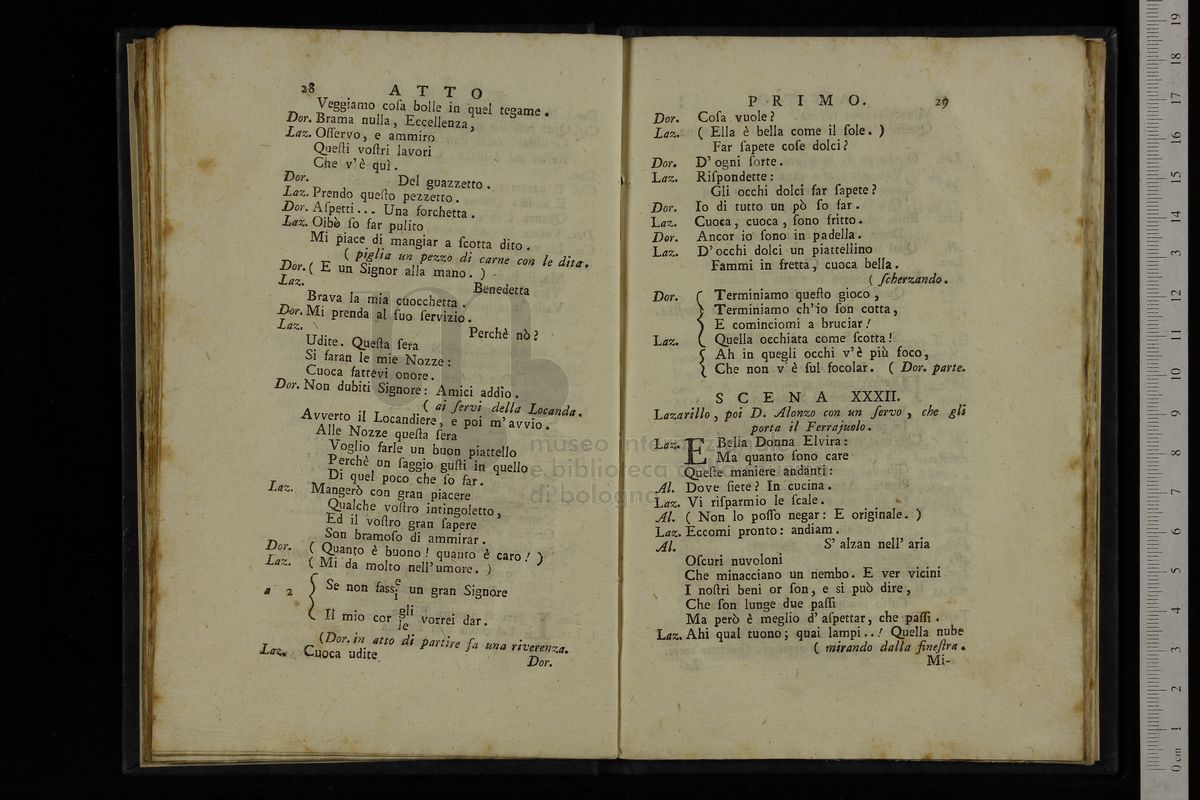 28 ATTO
Veggiamo coſa bolle in quel tegame.
Dor. Brama nulla, Eccellenza,
Laz. Oſſervo, e ammiro
Queſti voſtri lavori
Che v'è quì.
Dor. Del guazzetto.
Laz. Prendo queſto pezzetto.
Dor. Aſpetti... Una forchetta.
Laz. Oibè ſo far pulito
Mi piace di mangiar a ſcotta dito.
( piglia un pezzo di carne con le dita.
Dor. ( E un Signor alla mano. )
Laz. Benedetta
Brava la mia cuocchetta.
Dor. Mi prenda al ſuo ſervizio.
Laz. Perchè nò?
Udite. Queſta ſera
Si faran le mie Nozze:
Cuoca fattevi onore.
Dor. Non dubiti Signore: Amici addio.
( ai ſervi della Locanda.
Avverto il Locandiere, e poi m'avvio.
Alle Nozze queſta ſera
Voglio farle un buon piattello
Perchè un ſaggio guſti in quello
Di quel poco che ſo far.
Laz. Mangerò con gran piacere
Qualche voſtro intingoletto,
Ed il voſtro gran ſapere
Son bramoſo di ammirar.
Dor. ( Quanto è buono! quanto è caro! )
Laz. ( Mi da molto nell'umore. )
a 2 { Se non fasse/i un gran Signore
Il mio cor gli/le vorrei dar.
(Dor. in atto di partire fa una riverenza.
Laz. Cuoca udite
Dor.
PRIMO. 29
Dor. Coſa vuole?
Laz. ( Ella è bella come il ſole. )
Far ſapete coſe dolci?
Dor. D'ogni ſorte.
Laz. Riſpondette:
Gli occhi dolci far ſapete?
Dor. Io di tutto un pò ſo far.
Laz. Cuoca, cuoca, ſono fritto.
Dor. Ancor io ſono in padella.
Laz. D'occhi dolci un piattellino
Fammi in fretta, cuoca bella.
( ſcherzando.
Dor. { Terminiamo queſto gioco,
Terminiamo ch'io ſon cotta,
E cominciomi a bruciar!
Laz. Quella occhiata come ſcotta!
{ Ah in quegli occhi v'è più foco,
Che non v'è ſul focolar. ( Dor. parte.
SCENA XXXII.
Lazarillo, poi D. Alonzo con un ſervo, che gli
porta il Ferrajuolo.
Laz. E Bella Donna Elvira:
Ma quanto ſono care
Queſte maniere andanti:
Al. Dove ſiete? In cucina.
Laz. Vi riſparmio le ſcale.
Al. ( Non lo poſſo negar: E originale. )
Laz. Eccomi pronto: andiam.
Al. S'alzan nell'aria
Oſcuri nuvoloni
Che minacciano un nembo. E ver vicini
I noſtri beni or ſon, e si può dire,
Che ſon lunge due paſſi
Ma però è meglio d'aſpettar, che paſſi.
Laz. Ahi qual tuono; quai lampi..! Quella nube
( mirando dalla fineſtra.
Mi-
museo inte
e biblioteca
di bologna
0 cm 1 2 3 4 5 6 7 8 9 10 11 12 13 14 15 16 17 18 19